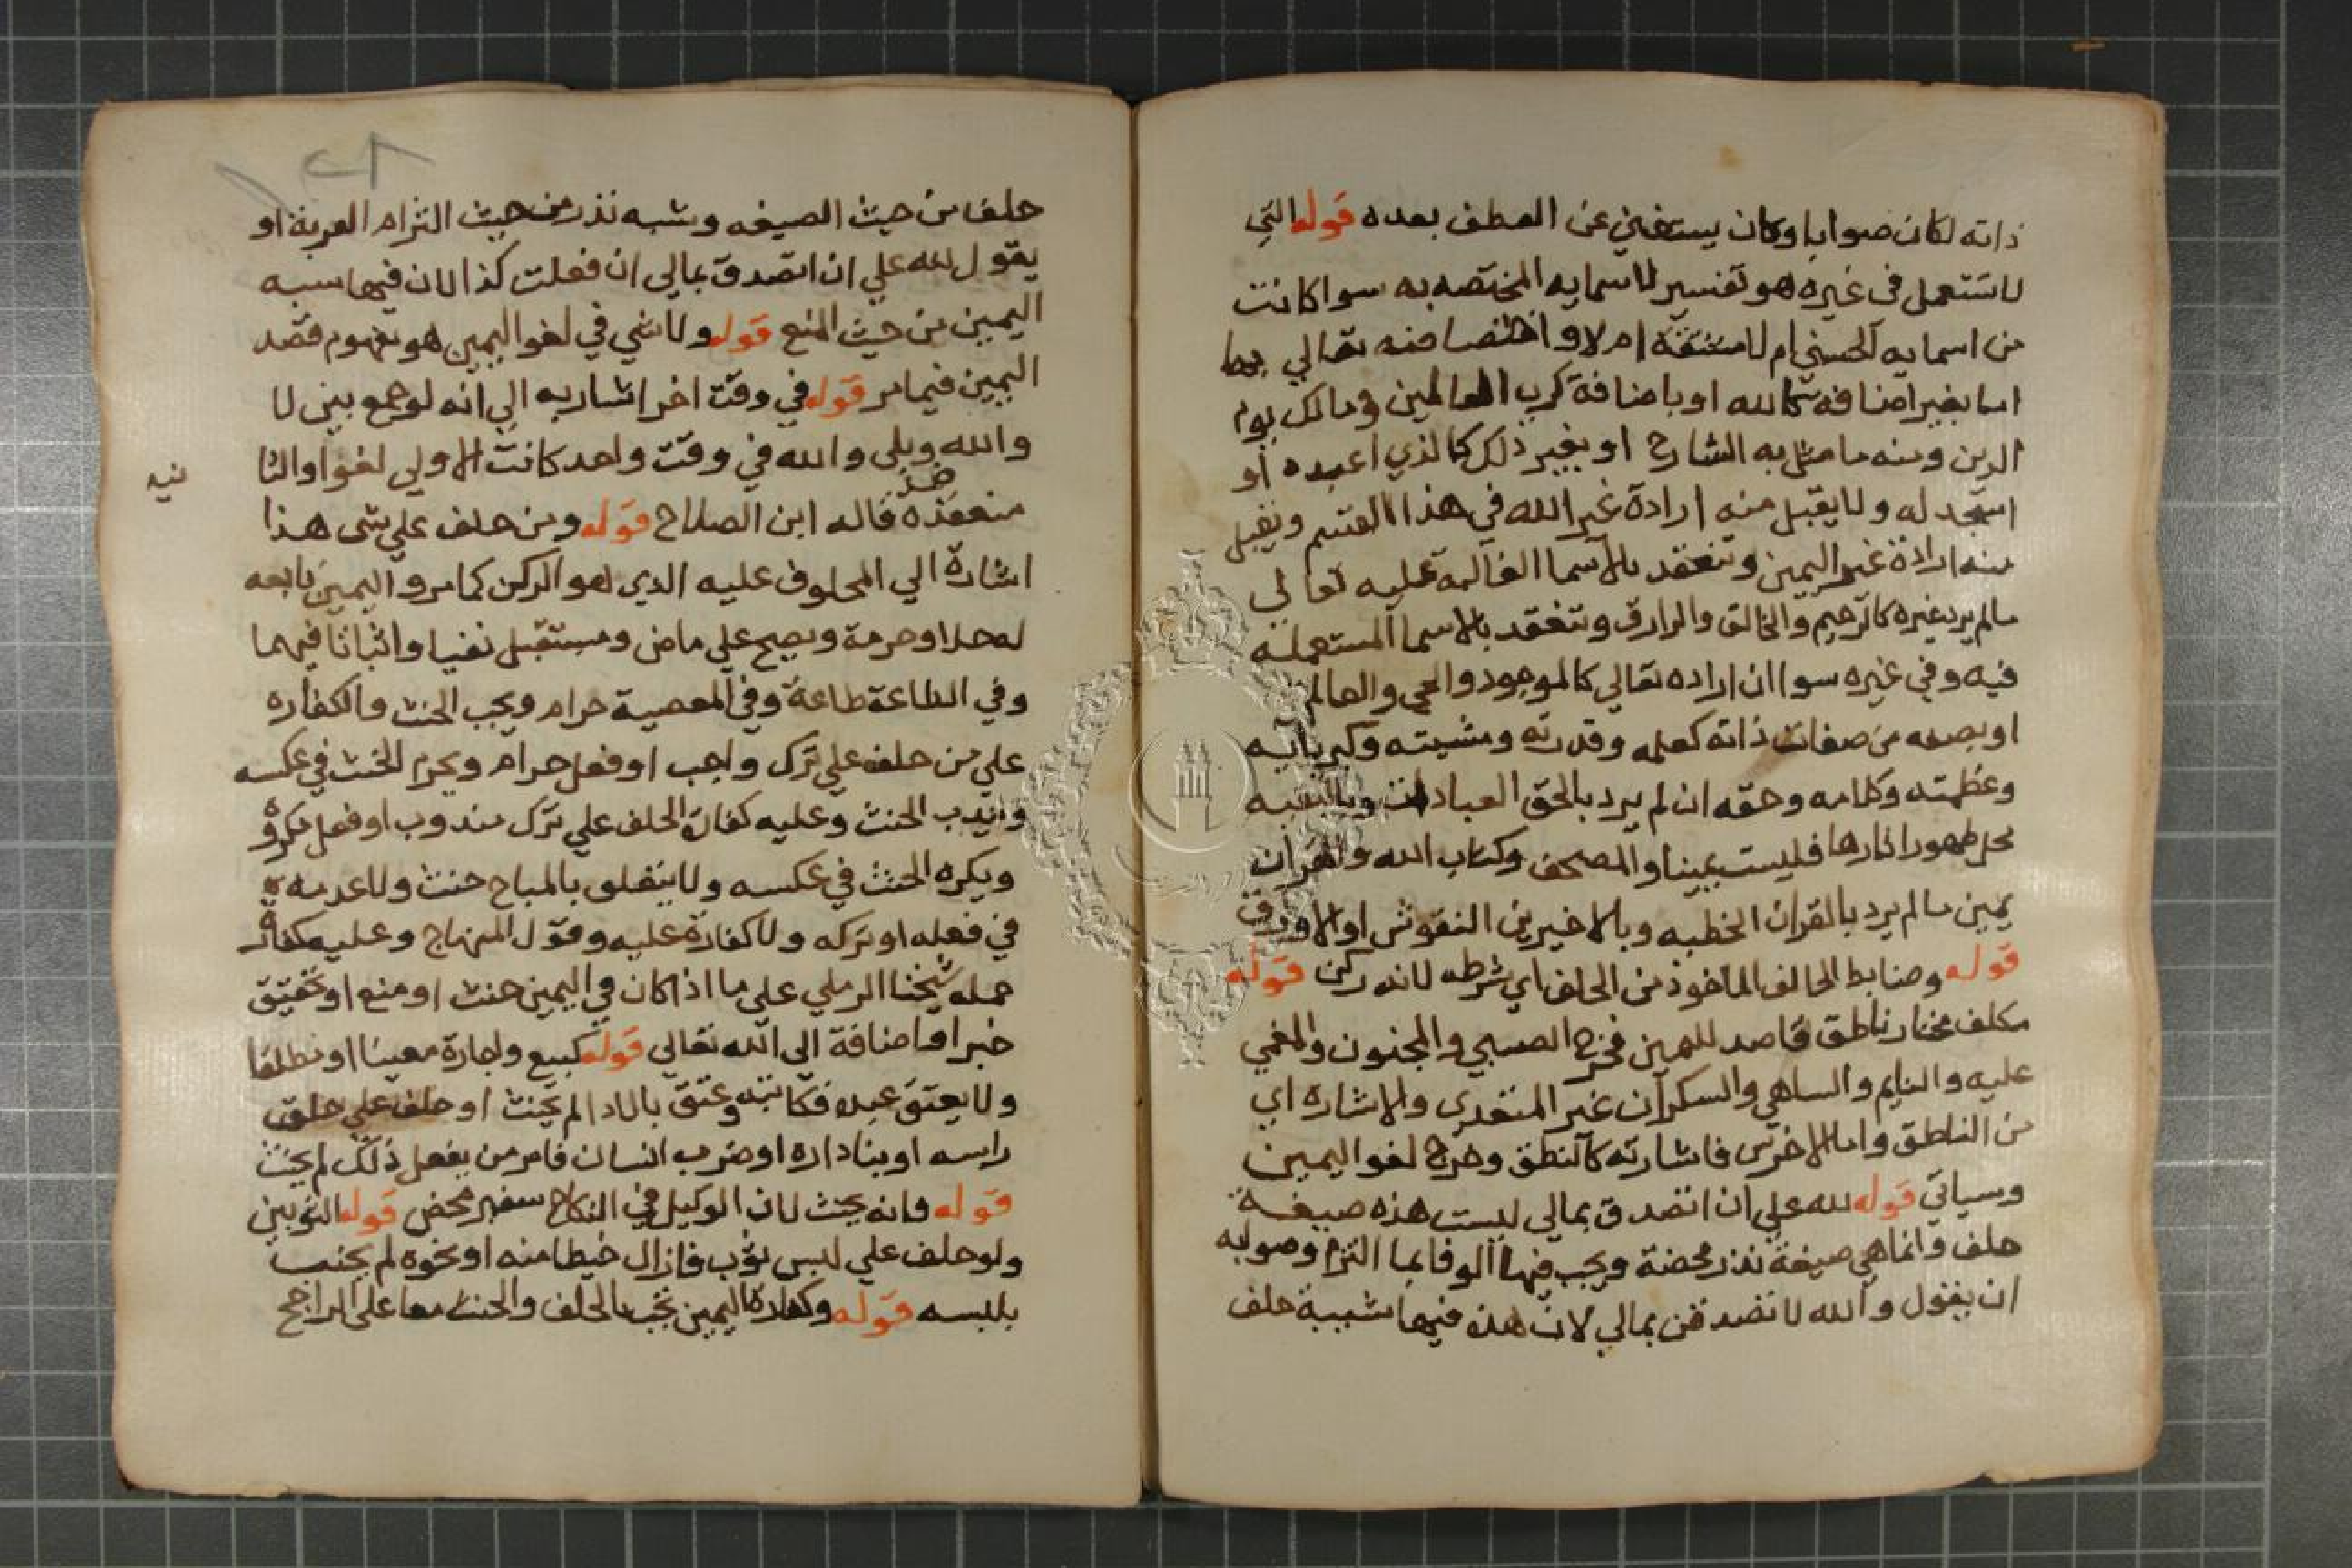 ذاته لكان صوابا وكان يستغني عن العطف بعده قوله التي
لا تستعمل في غيره هو تفسير لاسمايه المختصه به سوا كانت
من اسمايه الحسني ام لا مشتقة ام لا واختصاصه تعالي بها
اما بغير اضافة كالله او باضافة كرب العالمين ومالك يوم
الدين ومنه ما مثل به الشارح او بغير ذلك كالذي اعبده او
اسجد له ولا يقبل منه ارادة غير الله في هذا القسم ويقبل
منه ارادة غير اليمين وتنعقد بالاسما الغالبة عليه تعالي
مالم يرد غيره كالرحيم والخالق والرازق وتنعقد بالاسما المستعمله
فيه وفي غيره سوا ان اراده تعالي كالموجود والحي والعالم
او بصفه من صفات ذاته كعلمه وقدرته ومشيته وكبريايه
وعظمته وكلامه وحقه ان لم يرد بالحق العبادات وبالبقيه
محل ظهور اثارها فليست يمينا والمصحف وكتاب الله والقران
يمين مالم يرد بالقران الخطبه وبالاخيرين النقوش او الاوراق
قوله وضابط الحالف الماخوذ من الحلف اي شرطه لانه ركن قوله
مكلف مختار ناطق قاصد لليمين فخرج الصبي والمجنون والمغمي
عليه والنايم والساهي والسكران غير المتعدي والاشاره اي
من الناطق واما الاخرس فاشارته كالنطق وخرج لغو اليمين
وسياتي قوله لله علي ان اتصدق بمالي ليست هذه صيغة
حلف وانما هي صيغة نذر محضة ويجب فيها الوفا بما التزم وصوابه
ان يقول والله لا تصدقن بمالي لان هذه فيها شبيبة حلف
حلف من حيث الصيغه وشبه نذر من حيث التزام القربة او
يقول لله علي ان اتصدق بمالي ان فعلت كذا لان فيها سبه
اليمين من حيث المنع قوله ولا شي في لغو اليمين هو مفهوم قصد
اليمين فيما مر قوله في وقت اخر اشار به الي انه لو جمع بين لا
والله وبلي والله في وقت واحد كانت الاولي لغوا والثا
نيه
منعقده قاله ابن الصلاح قوله ومن حلف علي شي هذا
اشارة الي المحلوف عليه الذي هو الركن كما مر واليمين تابعه
له حلا وحرمة ويصح علي ماض ومستقبل نفيا واثباتا فيهما
وفي الطاعة طاعة وفي المعصية حرام ويجب الحنث والكفاره
علي من حلف علي ترك واجب او فعل حرام ويحرم الحنث في عكسه
ويندب الحنث وعليه كفارة الحلف علي ترك مندوب او فعل مكروه
ويكره الحنث في عكسه ولا يتعلق بالمباح حنث ولا عدمه
في فعله او تركه ولا كفارة عليه وقول المنهاج وعليه كفارة
حمله شيخنا الرملي علي ما اذا كان في اليمين حنث او منع او تحقيق
خبر او اضافة الي الله تعالي قوله كبيع واجارة معينا او مطلقا
ولا يعتق عبده فكاتبه وعتق بالادا لم يحنث او حلف علي حلق
راسه او بنا داره او ضرب انسان فامر من يفعل ذلك لم يحنث
قوله فانه يحنث لان الوكيل في النكاح سفير محض قوله الثوبين
ولو حلف علي لبس ثوب فازال خيطا منه او نحوه لم يحنث
بلبسه قوله وكفارة اليمين تجب بالحلف والحنث معا علي الراجح